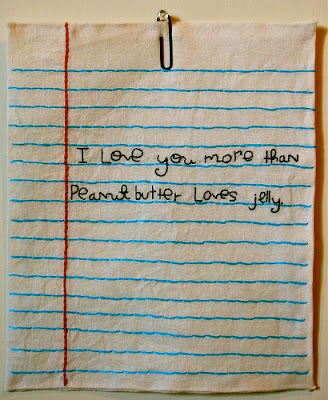 I Love you more than
Peanut butter Loves jelly.